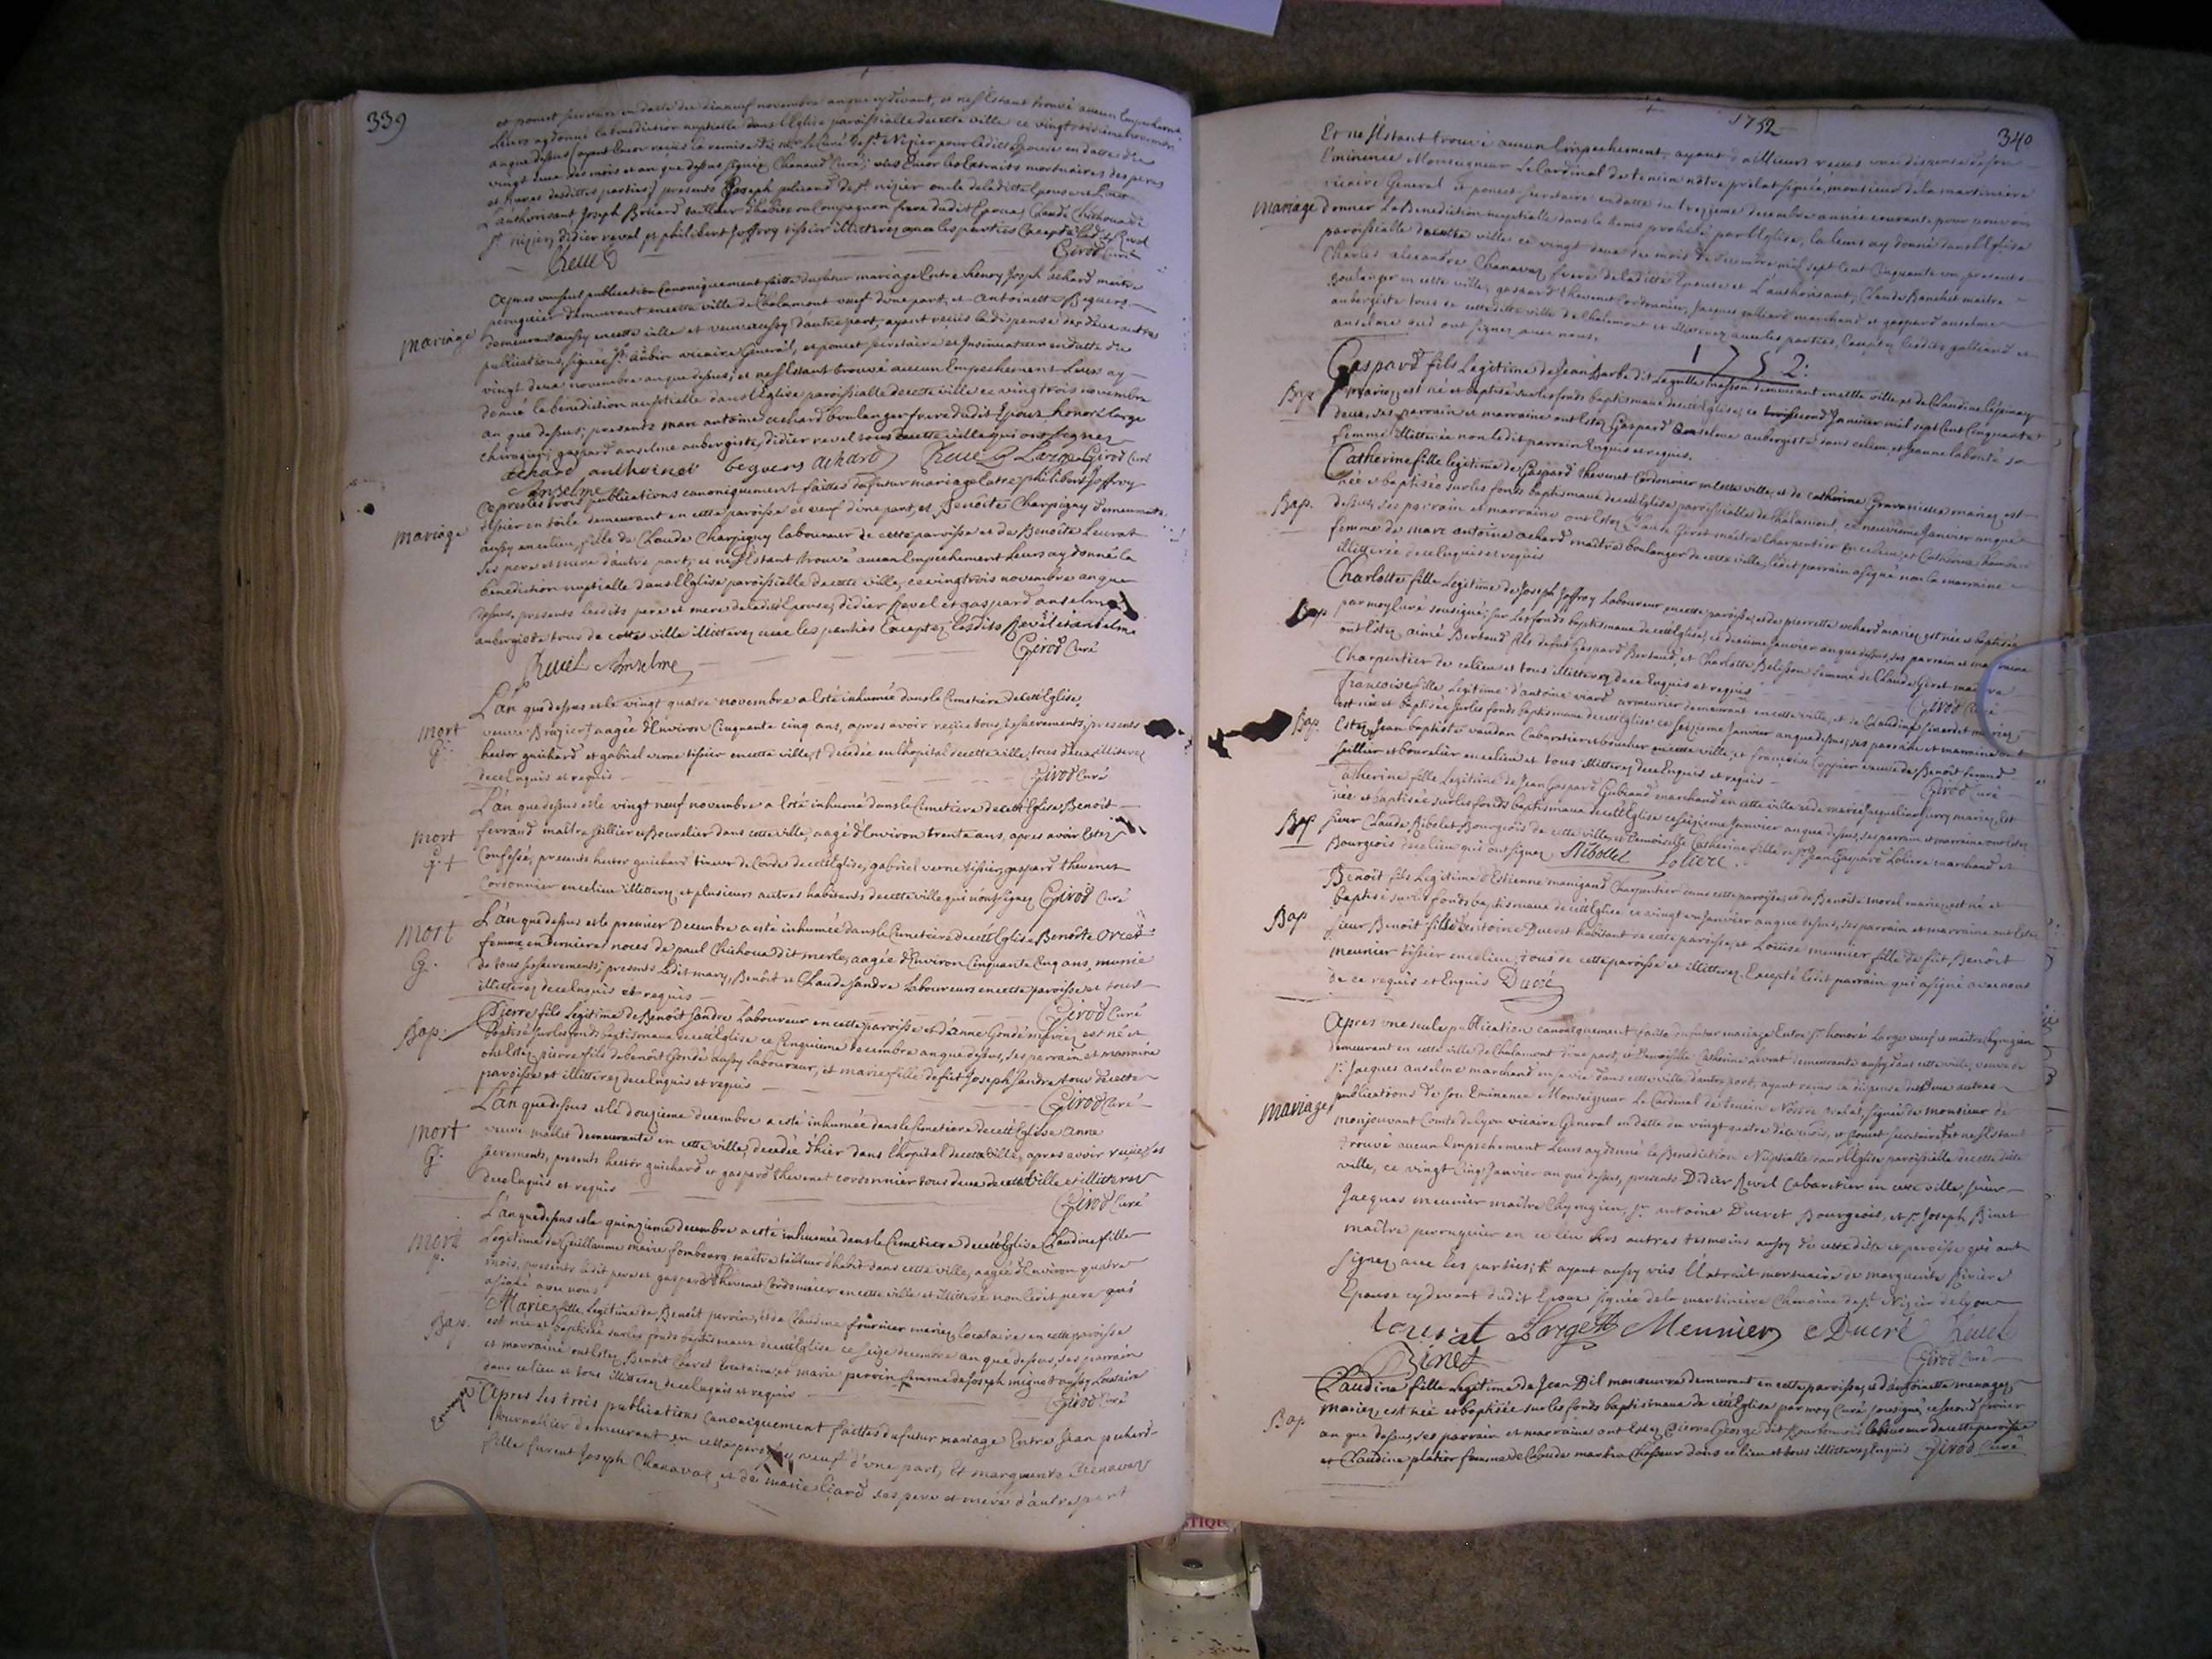 339
et poncet secretaire en datte du dixneuf novembre an que cy devant, et ne s'Estant trouvé aucun Empechement
Leurs ay donné la benediction nuptialle dans l'Eglise paroissialle de cette ville ce vingt troisieme novembre
an que dessus (ayant Encor reçus la remise de mr Le Curé de st Nizier pour laditte Epouse en datte du
vingt deux des mois et an que dessus signée Chanaud Curé; vûs Encor les Extraits mortuaires des peres
et meres desdittes parties) presents Joseph de st nizier oncle de laditte Epouse et
L'authorisant Joseph tailleur d'habits ou Compagnon frere dudit Epoux, Claude
st nizier, didier revel et philibert Joffroy tissier illitterez avec les parties Excepté ledit Revel
Revel Girod Curé
mariage
Apres une seule publication Canoniquement faitte du futur mariage Entre henry Joseph achard maitre
perruquier demeurant en cette ville de Chalamont veuf d'une part, et Antoinette Beguers
demeurant aussy en cette ville et veuve aussy d'autre part, ayant reçus la dispense des deux autres
publications, signée St aubin vicaire General, et poncet secretaire et Insinuation en datte du
vingt deux novembre an que dessus; et ne s'Estant trouvé aucun Empechement Leurs ay
donné la benediction nuptialle dans l'Eglise paroissialle de cette ville ce vingt trois novembre
an que dessus; presents marc antoine achard boulanger frere dudit Epoux honoré large
chirurgien; gaspard anselme aubergiste, didier revel tous de cette ville qui ont signez
achard anthoinet beguers achard Revel Large Girod Curé
Anselme
mariage
Apres les trois publications canoniquement faittes du futur mariage Entre philibert Joffroy
tissier en toile demeurant en cette paroisse et veuf d'une part, et Benoîte Charpigny demeurante
aussy en ce lieu, fille de Claude Charpigny laboureur de cette paroisse et de Benoîte Leurat
ses pere et mere d'autre part; et ne s'Estant trouvé aucun Empechement Leurs ay donné la
benediction nuptialle dans l'Eglise paroissialle de cette ville, ce vingt trois novembre an que
dessus, presents lesdits pere et mere de laditte Epouse, didier Revel et gaspard anselme
aubergiste tous de cette ville illitterez avec les parties Exceptez lesdits Revel et anselme
Girod Curé
Revel Anselme
mort
G.
L'an que dessus et le vingt quatre novembre a Esté inhumée dans le Cimetiere de cett'Eglise,
veuve Brazier † aagée d'Environ Cinquante cinq ans, apres avoir reçue tous les sacrements; presents
hector guichard et gabriel verne tissier en cette ville, † decedée en l'hopital de cette ville, tous deux illitterez
de ce Enquis et requis Girod Curé
mort
G. +
L'an que dessus et le vingt neuf novembre a Esté inhumé dans le Cimetiere de cett'Eglise Benoit
ferrand maitre sellier et Bourelier dans cette ville, aagé d'Environ trente ans, apres avoir Estez
Confessé, presents hector guichard tireur de Cordes de cett'Eglise, gabriel verne tissier, gaspard thevenet
Cordonnier en ce lieu illitterez, et plusieurs autres habitants de cette ville qui n'ont signez Girod Curé
mort
G.
L'an que dessus et le premier Decembre a esté inhumée dans le Cimetiere de cett'Eglise Benoîte orcet
femme en dernieres noces de paul Chichoua dit merle, aagée d'Environ Cinquante Cinq ans, munie
de tous sacrements; presents Ledit mary, Benoît et Claude Sandre Laboureurs en cette paroisse et tous
illitterez de ce Enquis et requis Girod Curé
Bap.
Pierre fils Legitime de Benoît Sandre Laboureur en cette paroisse et d'anne Gondé mariez est né et
baptisé sur les fonds baptismaux de cett'Eglise ce Cinquieme decembre an que dessus, ses parrain et marraine
ont Estez pierre fils de benoît Gondé aussy Laboureur, et marie fille de fût Joseph Sandre tous de cette
paroisse et illitterez de ce Enquis et requis Girod Curé
mort
G.
L'an que dessus et le douzieme decembre a esté inhumée dans le Cimetiere de cett'Eglise anne
veuve maillet demeurante en cette ville, decedée d'hier dans l'hopital de cette ville, apres avoir reçue ses
sacrements, presents hector guichard et gaspard thevenet cordonnier tous deux de cette ville et illitterez
de ce Enquis et requis Girod Curé
mort
p.
L'an que dessus et le quinzieme decembre a esté inhumée dans le Cimetiere de cett'Eglise Claudine fille
Legitime de Guillaume maire fombourg maitre tailleur d'habit dans cette ville, aagée d'Environ quatre
mois, presents ledit pere et gaspard thevenet Cordonnier en cette ville et illitteré non ledit pere qui
a signé avec nous
Bap.
Marie fille Legitime de Benoît perrin, et de Claudine fournier mariez locataire en cette paroisse
est née et baptisée sur les fonds baptismaux de cett'Eglise ce seize decembre an que dessus, ses parrain
et marraine ont Estez Benoît Locataire, et marie perrin femme de Joseph mignot aussy Locataire
dans ce lieu et tous illitterez de ce Enquis et requis Girod Curé
mariage
Apres les trois publications Canoniquement faittes du futur mariage Entre Jean
Journallier demeurant en cette paroisse veuf d'une part, Et marguerite Chenavaz
fille furent Joseph Chanavaz, et de marie Liard ses pere et mere d'autre part
1752
340
Et ne s'Estant trouvé aucun Empechement, ayant d'ailleurs reçues une dispense de son
Eminence Monseigneur Le Cardinal de tencin nôtre prelat signée, monsieur de la martiniere
vicaire General et poncet secretaire en datte du treizieme decembre année courante pour pouvoir
mariage
donner La Benediction nuptialle dans le tems prohibé par l'Eglise, la leurs ay donné dans l'Eglise
paroissialle de cette ville ce vingt deux du mois de decembre mil sept Cent Cinquante un, presents
Charles alexandre Chanavaz frere de laditte Epouse et L'authorisant, Claude Banchet maitre
Boulanger en cette ville, gaspard thevenet Cordonnier, Jacques galliard marchand et gaspard anselme
aubergiste tous de cette ditte ville de Chalamont et illitterez avec les parties, Exceptez lesdits galliard et
anselme qui ont signez avec nous.
1752:
Bap.
Gaspard fils Legitime de Jean Barbe dit Laguille masson demeurant en cette ville, et de Claudine Lespinay
mariez, est né et baptisé sur les fonds baptismaux de cett'Eglise, ce second Janvier mil sept Cent Cinquante
deux, ses parrain et marraine ont Estez Gaspard Anselme aubergiste dans ce lieu, et Jeanne labonté sa
femme illitterée non ledit parrain Enquis et requis.
Bap.
Catherine fille legitime de Gaspard thevenet Cordonnier en cette ville, et de catherine mariez est
née et baptisée sur les fonds baptismaux de cett'Eglise paroissialle de Chalamont, ce neuvieme Janvier an que
dessus, ses parrain et marraine ont Estez Claude Giret maitre Charpentier en ce lieu, et Catherine
femme de marc antoine achard maitre boulanger de cette ville, ledit parrain a signé non la marraine
illitterée de ce Enquise et requis
Bap
Charlotte fille Legitime de Joseph Joffroy Laboureur en cette paroisse, et de pierrette achard mariez est née et baptisée
par moy Curé soussigné, sur Les fonds baptismaux de cett'Eglise, ce dixieme Janvier an que dessus, ses parrain et marraine
ont Estez aimé Bertaud fils de fut Gaspard Bertaud, et Charlotte Belisson femme de Claude Giret maitre
Charpentier de ce lieu et tous illitterez de ce Enquis et requis Girod Curé
Bap.
françoise fille Legitime d'antoine viard armeurier demeurant en cette ville, et de Claudine Sinardet mariez,
est née et baptisée sur les fonds baptismaux de cett'Eglise ce seizieme Janvier an que dessus, ses parrain et marraine ont
Estez Jean baptiste vaudan Cabaretier et boucher en cette ville, et françoise Coppier veuve de Benoît ferrand
sellier et bourelier en ce lieu et tous illitterez de ce Enquis et requis Girod Curé
Bap
Catherine fille Legitime de Jean Gaspard Gubiand marchand en cette ville et de marie Jacqueline Surry mariez, est
née et baptisée sur les fonds baptismaux de cett'Eglise ce seizieme Janvier an que dessus, ses parrain et marraine ont Estez
sieur Claude Ribolet Bourgeois de cette ville, et Demoiselle Catherine fille de sr Jean Gaspard Loliere marchand et
Bourgeois de ce lieu qui ont signez Ribollet Loliere
Bap
Benoît fils Legitime d'Estienne manigand Charpentier dans cette paroisse, et de Benoîte morel mariez, est né et
baptisé sur les fonds baptismaux de cett'Eglise ce vingt un Janvier an que dessus, ses parrain et marraine ont Estez
sieur Benoît fils d'antoine Ducret habitant de cette paroisse, et Loüise meunier fille de fût Benoît
meunier tissier en ce lieu, tous de cette paroisse et illitterez Excepté ledit parrain qui a signé avec nous
de ce requis et Enquis Ducré
mariage
Apres une seule publication canoniquement faitte du futur mariage Entre sr honoré Large veuf et maitre Chyrurgien
demeurant en cette ville de Chalamont d'une part, et Demoiselle Catherine Levrat demeurante aussy dans cette ville, veuve de
sr Jacques anselme marchand en son vie dans cette ville d'autre part, ayant reçus la dispense des deux autres
publications de son Eminence Monseigneur Le Cardinal de tencin Nôtre prelat, signée de monsieur de
monjouvant Comte de Lyon vicaire General en datte du vingt quatre de ce mois, et poncet secretaire; Et ne s'Estant
trouvé aucun Empechement Leurs ay donné la Benediction Nuptialle dans l'Eglise paroissialle de cette ditte
ville, ce vingt Cinq Janvier an que dessus, presents Didier Revel Cabaretier en cette ville, sieur
Jacques meunier maître Chyrurgien, sr antoine Ducret Bourgeois, et sr Joseph Binet
maître perruquier en ce lieu tous autres tesmoins aussy de cette ditte et paroisse qui ont
signez avec les parties; Et ayant aussy vûs l'Extrait mortuaire de marguerite Riviere
Epouse cy devant dudit Epoux signée de la martiniere Chanoine de st Nizier de Lyon
Levrat Large Meunier Ducré Revel
Binet Girod Curé
Bap
Claudine fille Legitime de Jean Dil manoeuvre demeurant en cette paroisse, et d'antoinette menager
mariez, est née et baptisée sur les fonds baptismaux de cett'Eglise par moy Curé soussigné, ce second fevrier
an que dessus, ses parrain et marraine ont Estez Pierre George dit laboureur de cette paroisse
et Claudine platier femme de Claude martin Chasseur dans ce lieu et tous illitterez Enquis Girod Curé